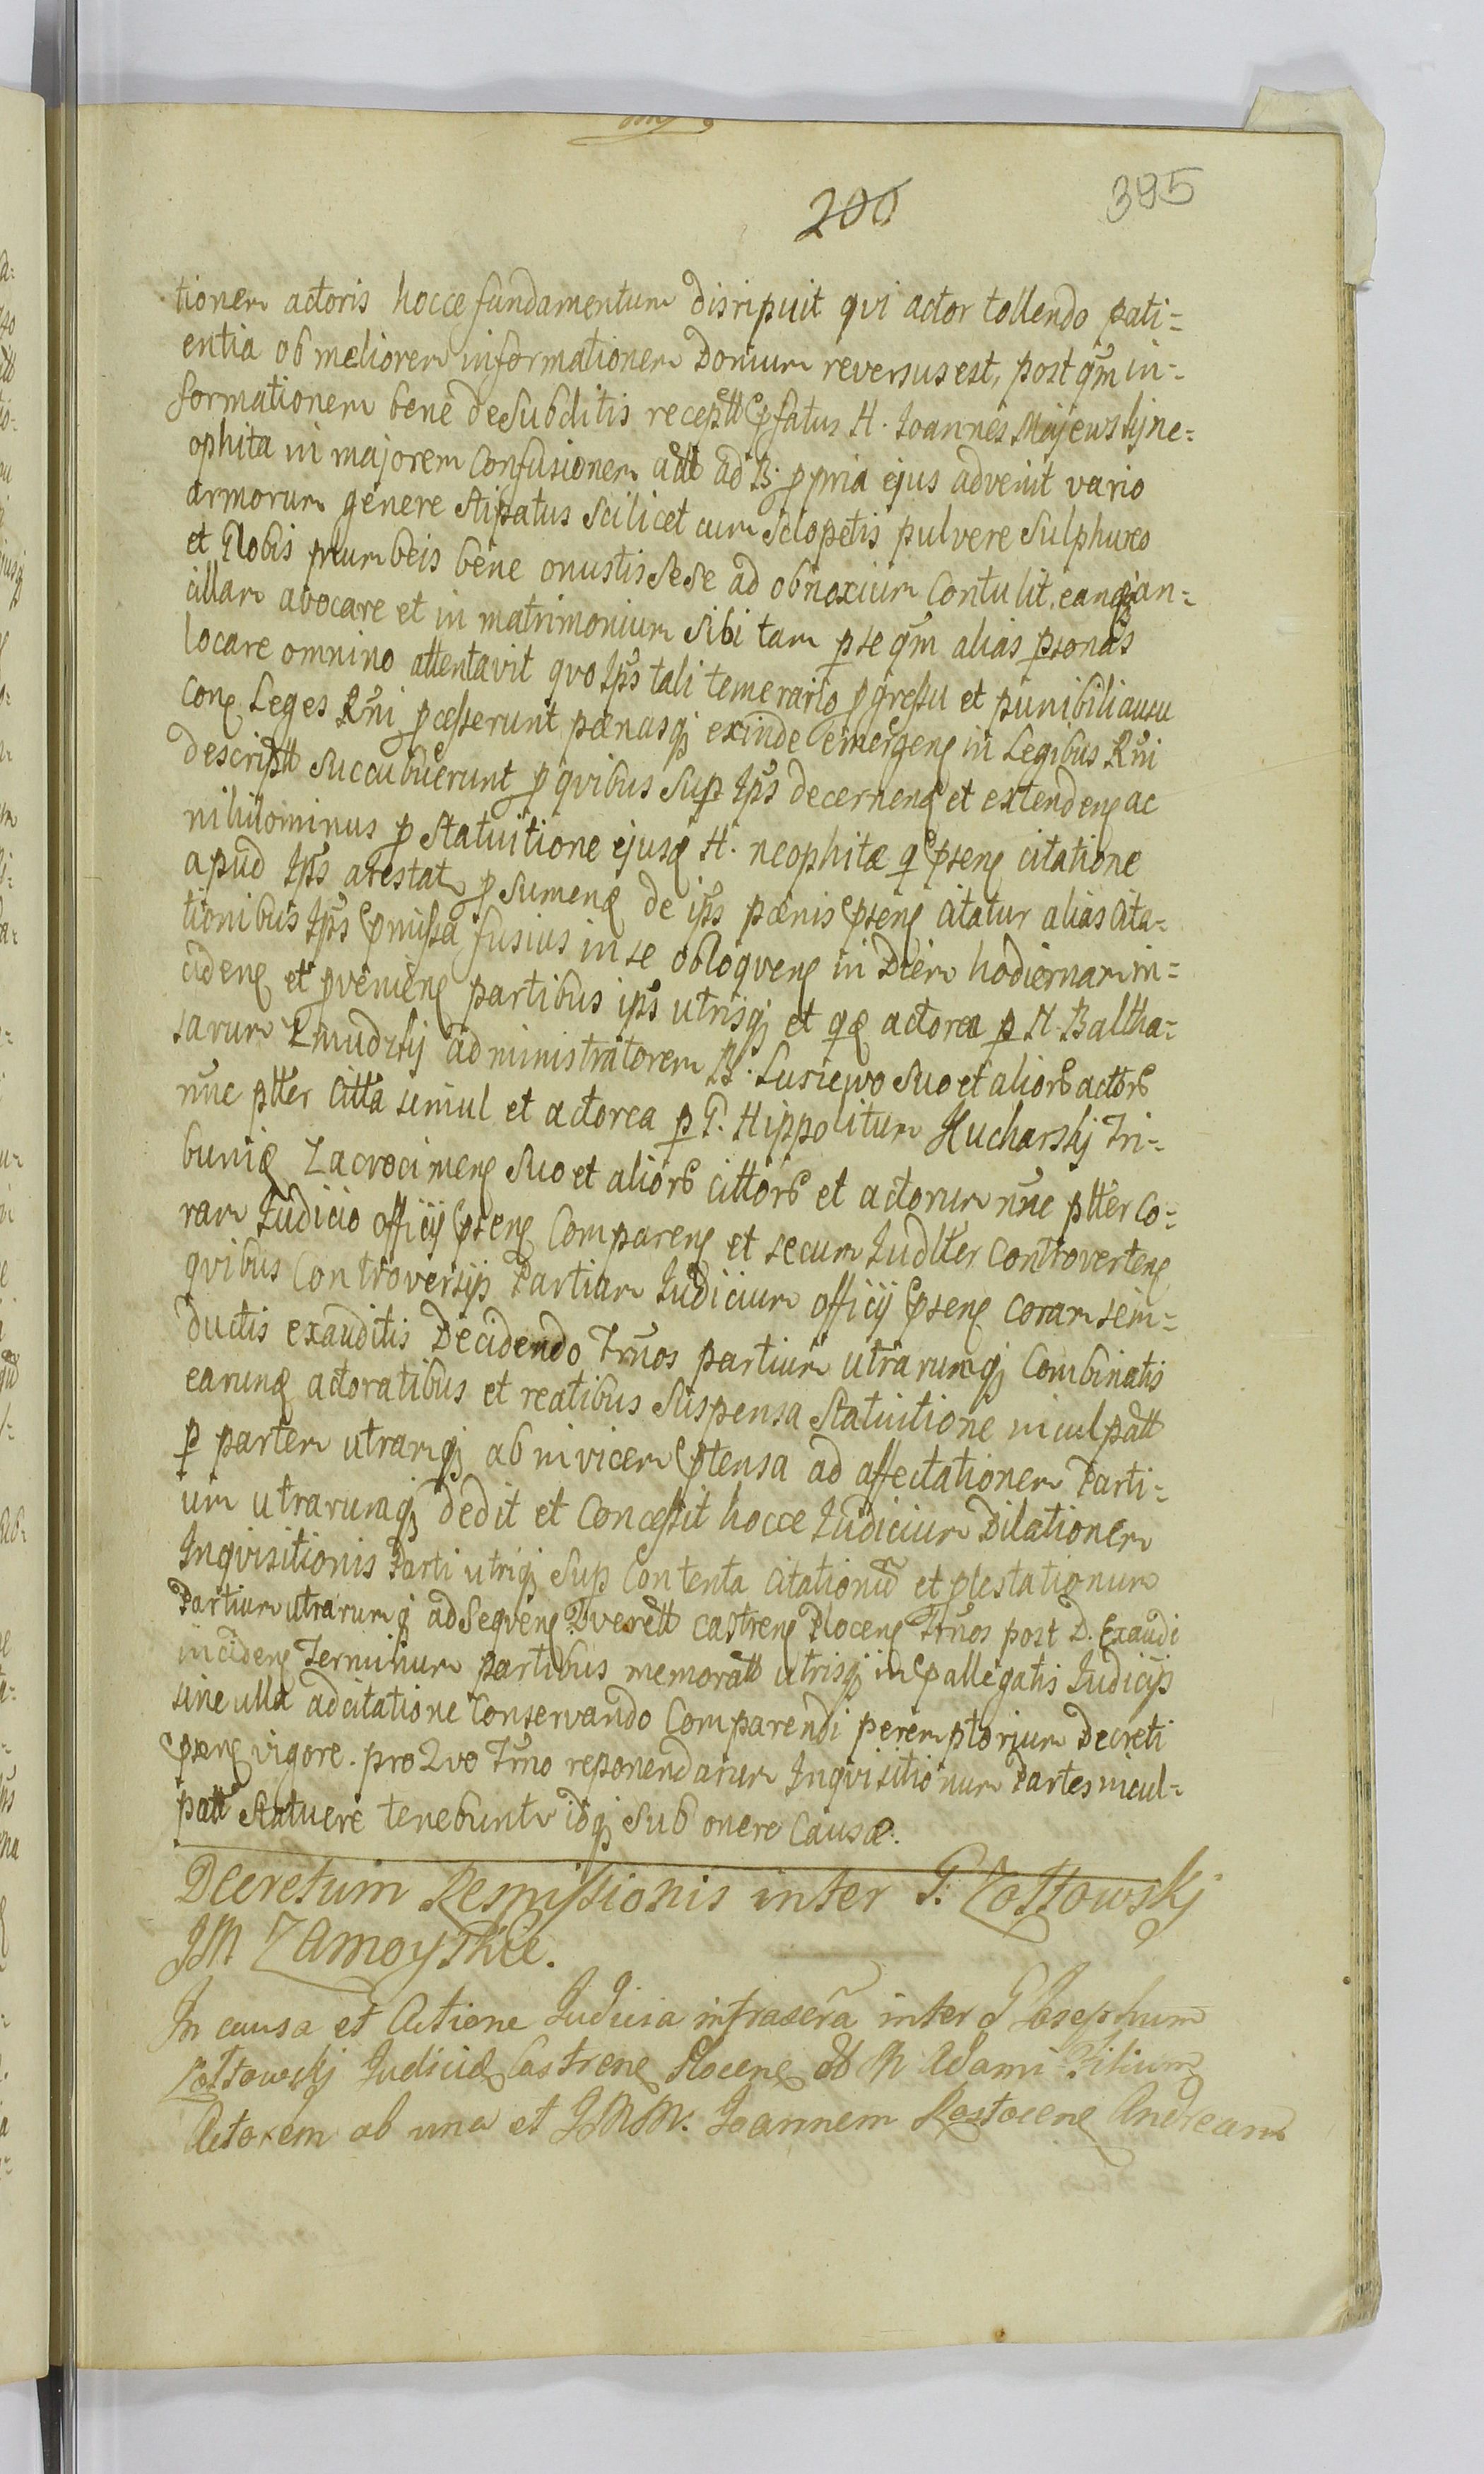 200
395
tionem actoris hocce fundamentum disripuit qvi actor tollendo pati=
entia ob meliorem informationem Domum reversus est, post qm in=
formationem bene de Subditis receptt pfatus H. Joannes Majewskj ne=
ophita in majorem Confusionem adt ad B. ppria ejus advenit vario
armorum genere Stipatus Scilicet cum Sclopetis pulvere Sulphureo
et Globis plumbeis bene onustis Sese ad obnoxium Contulit, eanqz an=
cillam avocare et in matrimonium Sibi tam p se qm alias psonas
locare omnino attentavit qvo Ips tali temerario pgressu et punibili ausu
Con Leges Rni pcesserunt pænasqz exinde emergen in Legibus Rni
descriptt Succubuerunt p qvibus Sup Ips decernen et extenden ac
nihilominus p Statuitione ejusd H. neophitæ q psen citatione
apud Ips arestat p Sumend de ips pænis psen citatur alias Cita=
tionibus Ips pmissa fusius in se obloqven in Diem hodiernam in=
ciden et pvenien partibus ips utrisqz et qd actorea p H. Baltha=
sarum Zmudzkj administratorem B. Lusiewo Suo et aliors actors
nunc ptter Citta simul et actorea p G. Hippolitum Kucharskj Tri=
bunid Zacrocimen Suo et aliors cittors et actorum nunc ptter Co=
ram Judicio officij psen Comparen et secum Judlter Controverten
qvibus Controversijs Partiam Judicium officij psen Coram se in=
ductis exauditis Decidendo Trnos partium utrarumqz Combinatis
earund actoratibus et reatibus Suspensa Statuitione inculpatt
p partem utramqz ab invicem ptensa ad affectationem Parti=
um utrarumqz dedit et Concessit hocce Judicium Dilationem
Inqvisitionis Parti utriqz Sup Contenta Citationum et plestationum
Partium utrarumqz ad Seqven Qverett Castren Plocen Trnos post D. Exaudi
inciden Terminum partibus memoratt utrisqz in pallegatis Judicijs
sine ulla adcitatione Conservando Comparendi peremptorium Decreti
psen vigore. pro Qvo Trno reponendarum Inqvisitionum Partes incul=
patt Statuere tenebuntr idqz Sub onere Causæ.
Decretum Remissionis inter G. Lottowskj
JM Zamoyskie.
In causa et Actione Judicia infrascra inter G Josephum
Lottowskj Judicid Castren Plocen M Adami Filium
Actorem ab una et JMM. Joannem Rostocen Andream